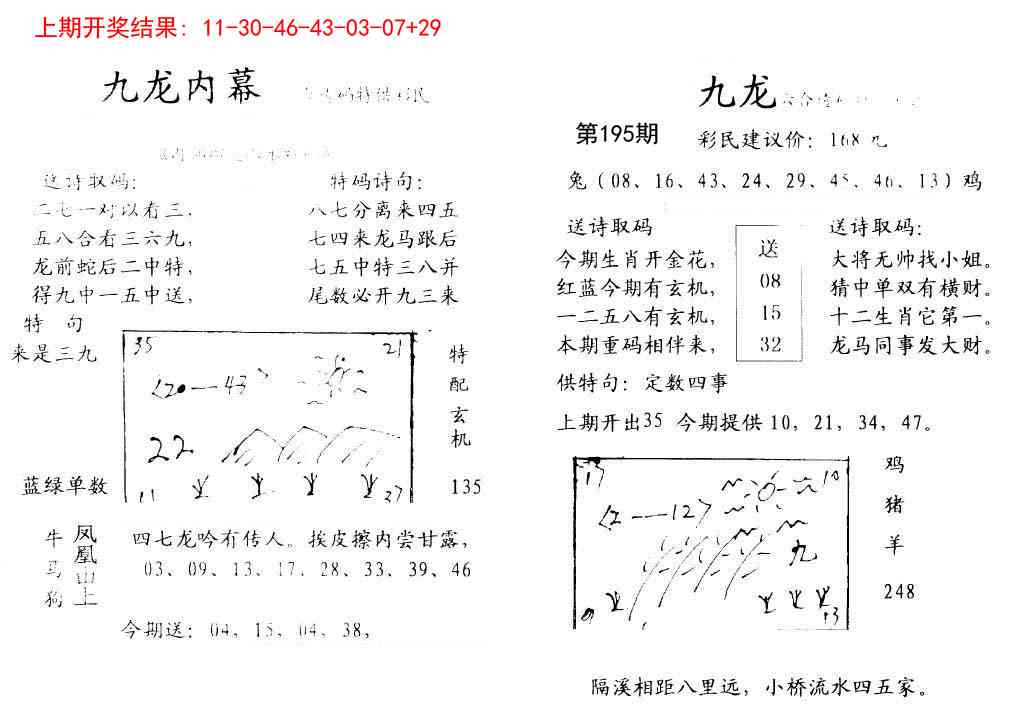 上期开奖结果：11-30-46-43-03-07+29
九龙内幕
码特供彩民
送诗取码：
二七一对以看三，
五八合看三六九，
龙前蛇后二中特，
得九中一五中送，
特码诗句：
八七分离来四五
七四来龙马跟后
七五中特三八并
尾数必开九三来
特 句
来是三九
35
21
<20—43>
22
11
27
特
配
玄
机
135
蓝绿单数
牛
马
狗
凤
凰
山
上
四七龙吟有传人。挨皮擦内尝甘露，
03、09、13、17、28、33、39、46
今期送：04，15，04，38，
九龙
第195期
彩民建议价：168元
兔（08、16、43、24、29、45、46、13）鸡
送诗取码
今期生肖开金花，
红蓝今期有玄机，
一二五八有玄机，
本期重码相伴来，
送
08
15
32
送诗取码：
大将无帅找小姐。
猜中单双有横财。
十二生肖它第一。
龙马同事发大财。
供特句：定数四事
上期开出35 今期提供10，21，34，47。
17
10
<2—12>
九
9
13
鸡
猪
羊
248
隔溪相距八里远，小桥流水四五家。